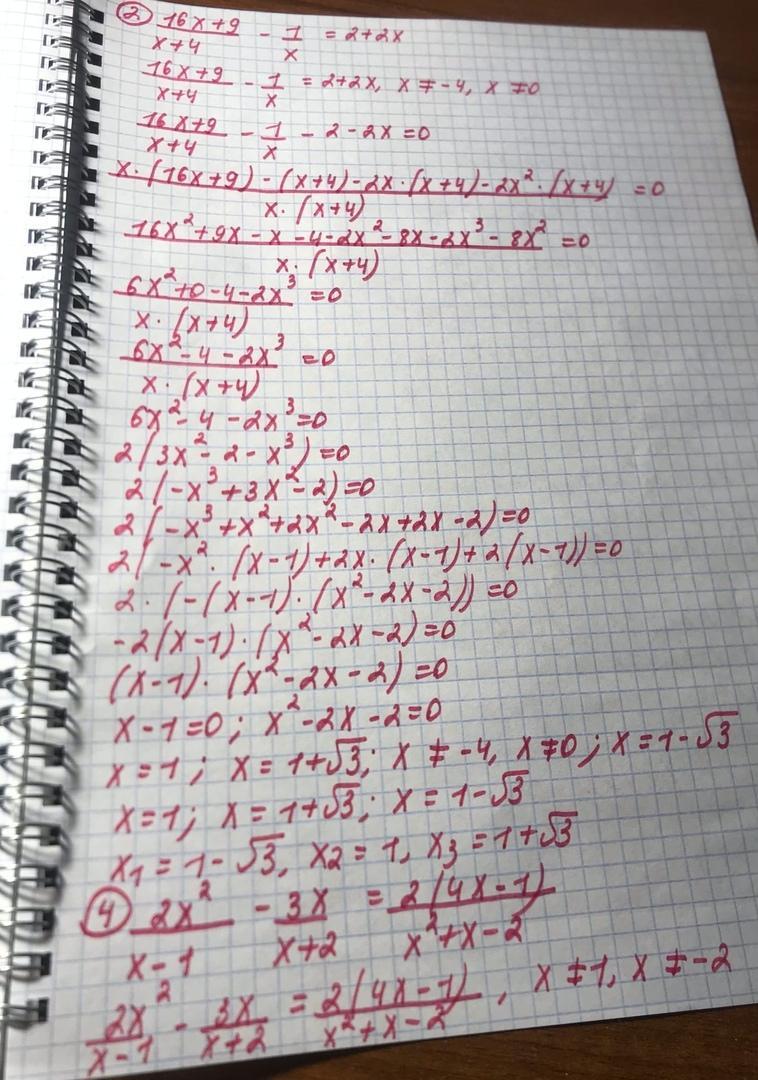 ② (16x+9)/(x+4) - 1/x = 2+2x
(16x+9)/(x+4) - 1/x = 2+2x, x ≠ -4, x ≠ 0
(16x+9)/(x+4) - 1/x - 2 - 2x = 0
(x·(16x+9) - (x+4) - 2x·(x+4) - 2x²·(x+4))/(x·(x+4)) = 0
(16x²+9x-x-4-2x²-8x-2x³-8x²)/(x·(x+4)) = 0
(6x²+0-4-2x³)/(x·(x+4)) = 0
(6x²-4-2x³)/(x·(x+4)) = 0
6x²-4-2x³=0
2(3x²-2-x³)=0
2(-x³+3x²-2)=0
2(-x³+x²+2x²-2x+2x-2)=0
2(-x²·(x-1)+2x·(x-1)+2(x-1))=0
2·(-(x-1)·(x²-2x-2))=0
-2(x-1)·(x²-2x-2)=0
(x-1)·(x²-2x-2)=0
x-1=0; x²-2x-2=0
x=1; x=1+√3; x ≠ -4, x ≠ 0; x=1-√3
x=1; x=1+√3; x=1-√3
x₁=1-√3, x₂=1, x₃=1+√3
④ 2x²/(x-1) - 3x/(x+2) = 2(4x-1)/(x²+x-2)
2x²/(x-1) - 3x/(x+2) = 2(4x-1)/(x²+x-2), x ≠ 1, x ≠ -2